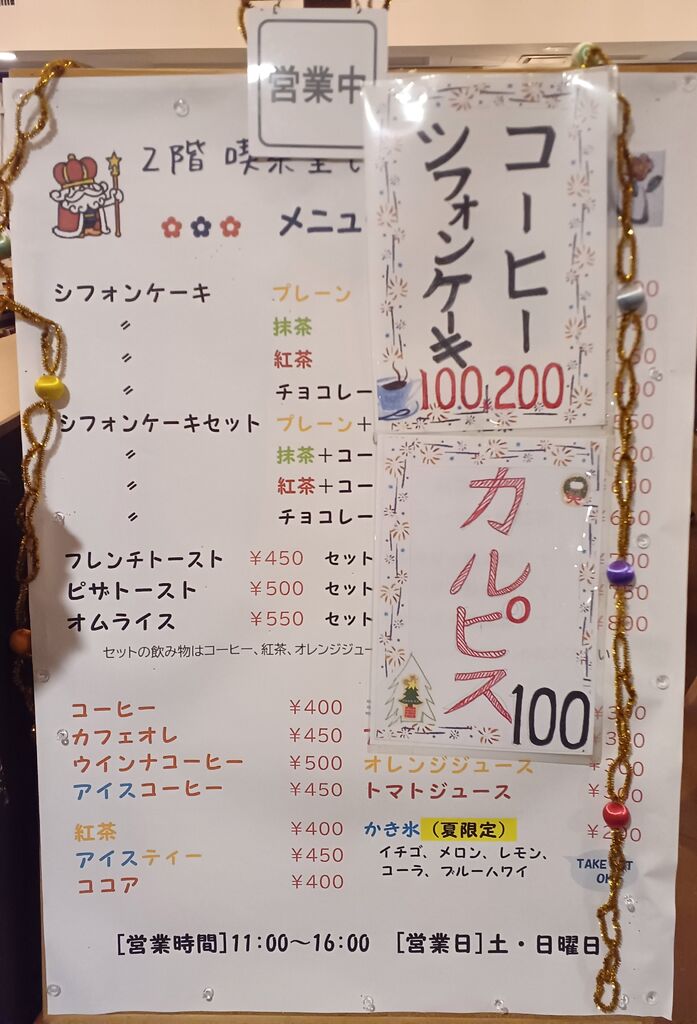 営業中
2階 喫茶室
メニュ
コーヒー
シフォンケーキ
100,200
カルピス
100
シフォンケーキ プレーン
〃 抹茶
〃 紅茶
〃 チョコレー
シフォンケーキセット プレーン+
〃 抹茶+コー
〃 紅茶+コー
〃 チョコレー
フレンチトースト ¥450 セット
ピザトースト ¥500 セット
オムライス ¥550 セット
セットの飲み物はコーヒー、紅茶、オレンジジュー
コーヒー ¥400
カフェオレ ¥450
ウインナコーヒー ¥500 オレンジジュース
アイスコーヒー ¥450 トマトジュース
紅茶 ¥400 かき氷(夏限定)
アイスティー ¥450 イチゴ、メロン、レモン、
ココア ¥400 コーラ、ブルーハワイ
TAKE OUT
OK
[営業時間]11:00~16:00 [営業日]土・日曜日